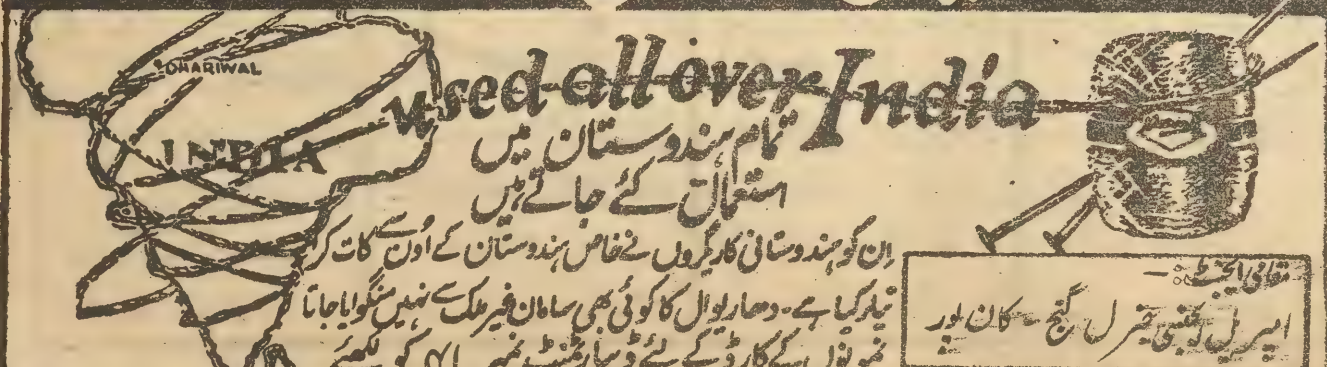 DHARIWAL
INDIA
used all over India
تمام ہندوستان میں
استعمال کئے جاتے ہیں
اِن کو ہندوستانی کاریگروں نے خاص ہندوستان کے اُون سے کات کر
تیار کیا ہے۔ دھاریوال کا کوئی بھی سامان غیر ملک سے نہیں منگوایا جاتا
نمونوں کے کارڈ کے لئے ڈیپارٹمنٹ نمبر کو لکھئے
مقامی ایجنٹ:۔
امپیریل ایجنسی جنرل گنج - کان پور